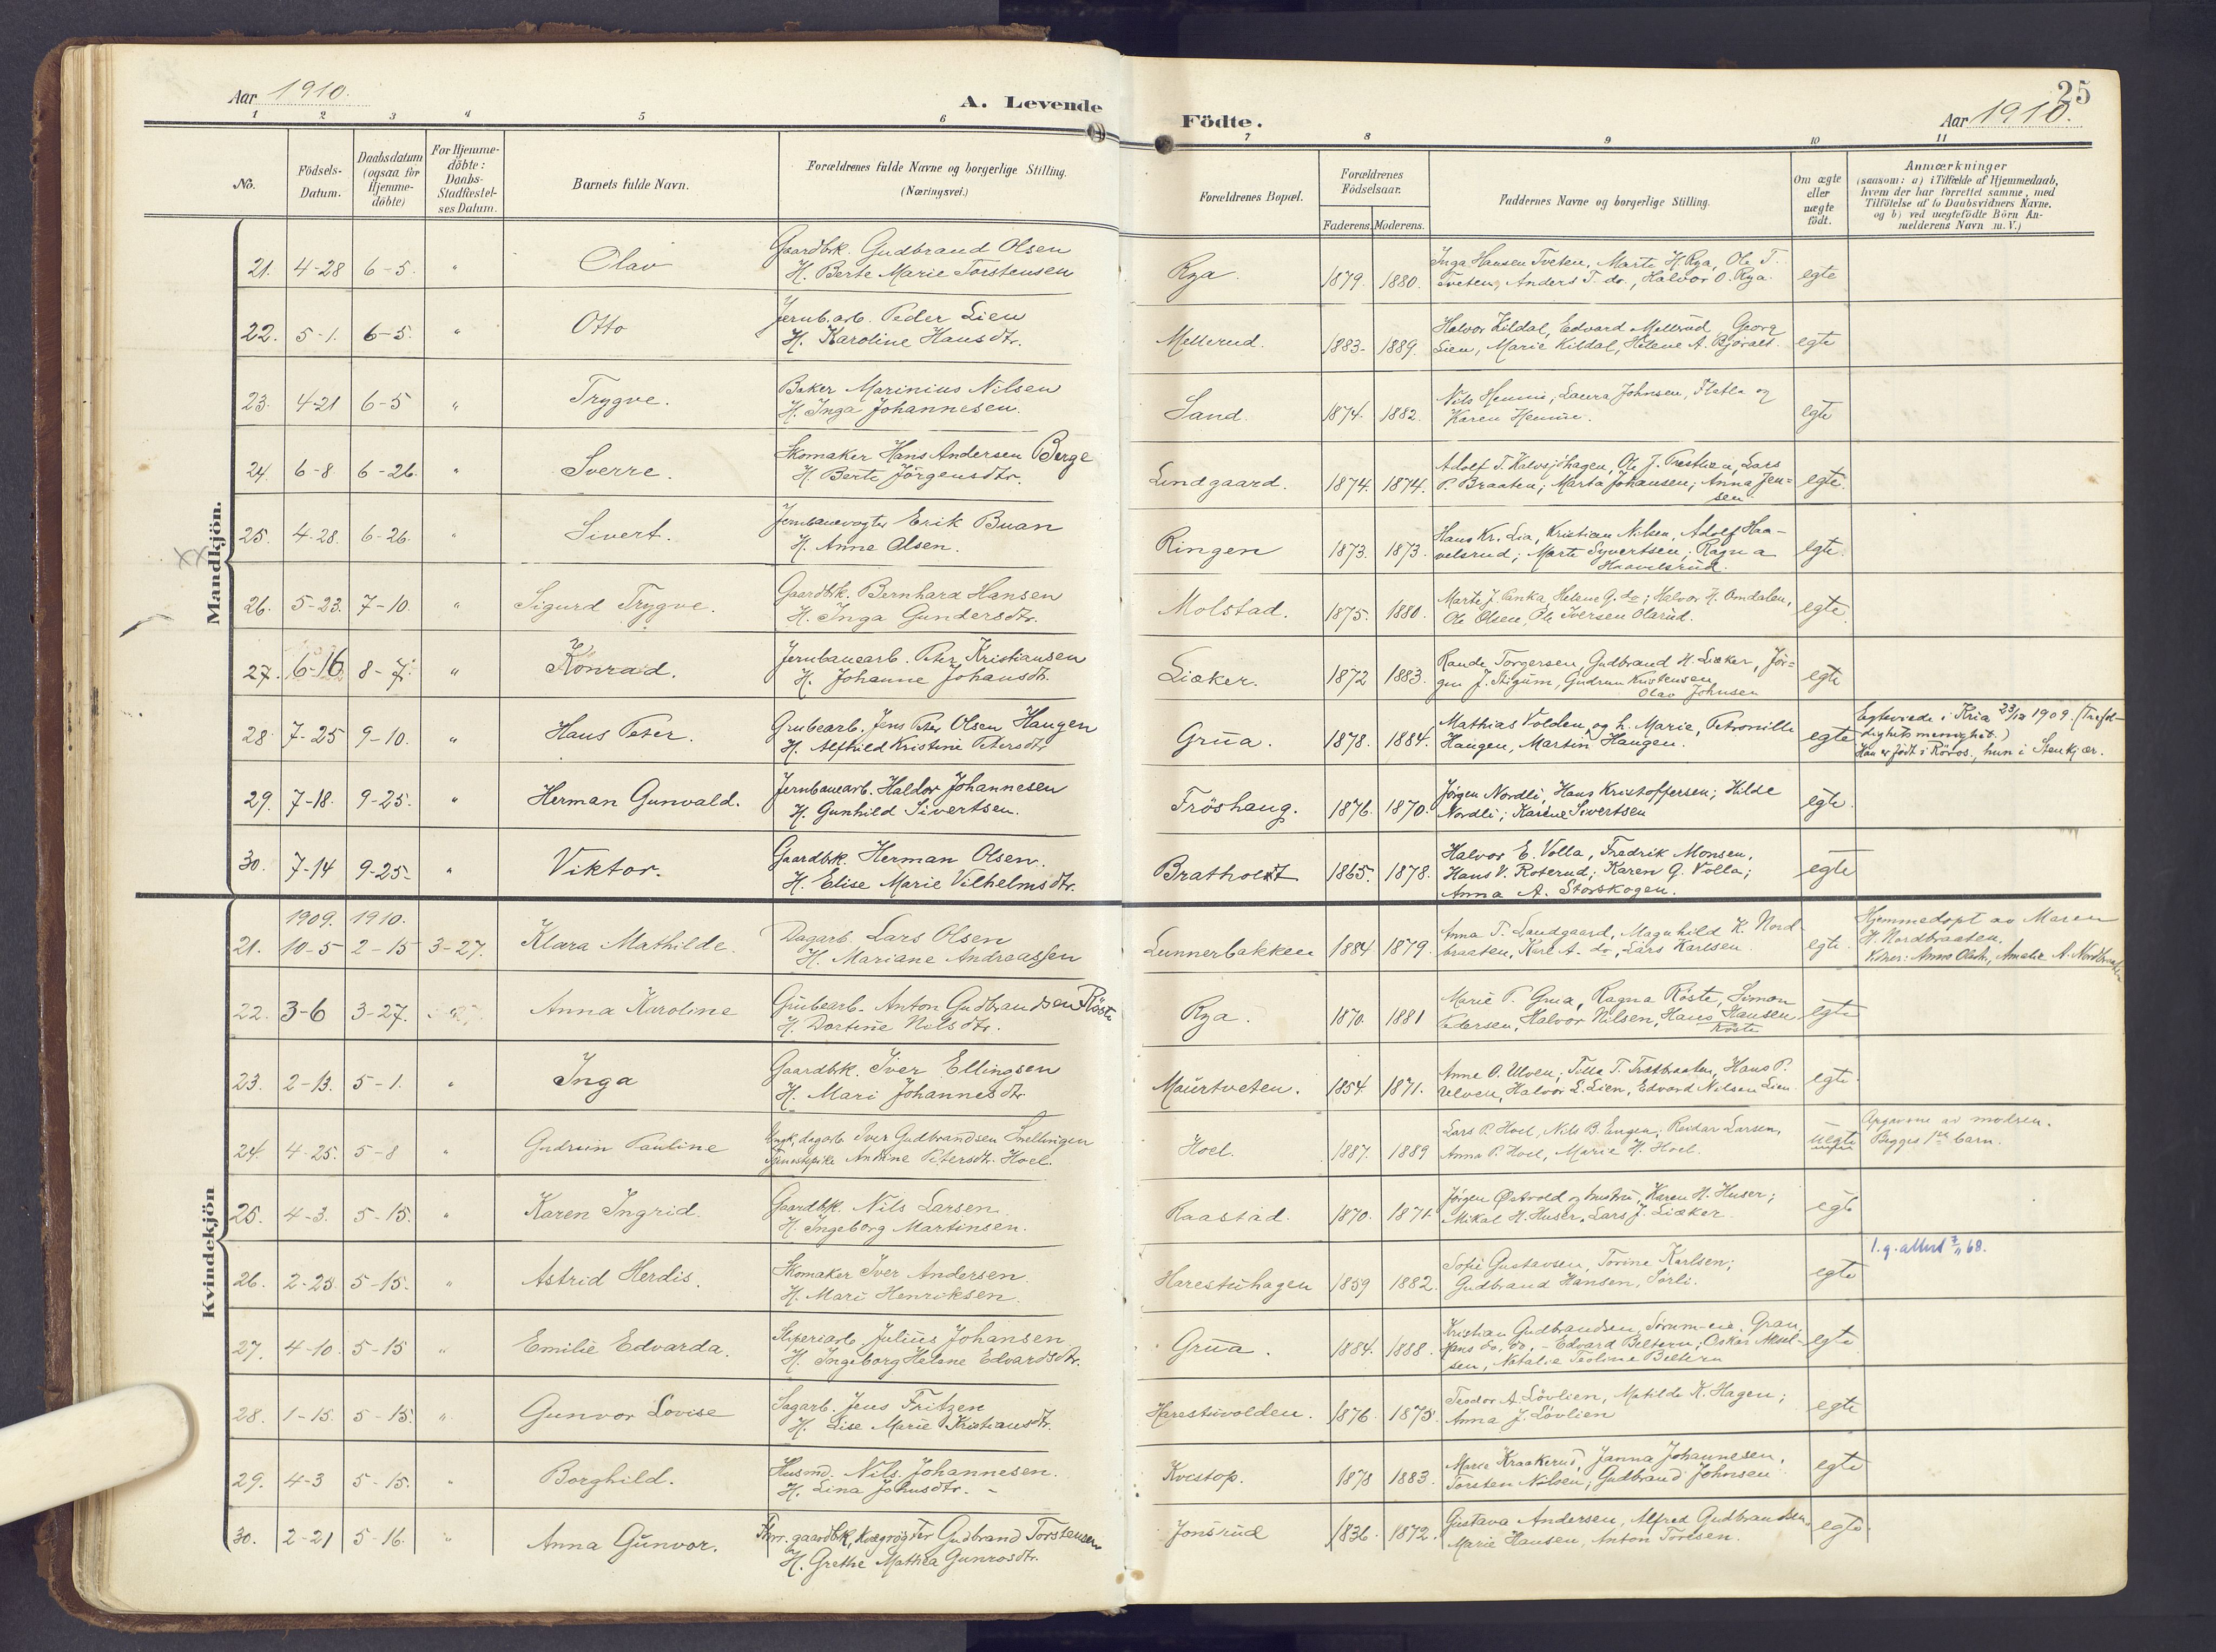 Aar 1910.
A. Levende
Födte.
25
Aar 1910.
1 2 3 4 5 6 7 8 9 10 11
No.
Födsels-
Datum.
Daabsdatum
(ogsaa for
Hjemme-
döbte)
For Hjemme-
döbte:
Daabs-
Stadfæstel-
ses Datum.
Barnets fulde Navn.
Forældrenes fulde Navne og borgerlige Stilling.
(Næringsvei.)
Forældrenes Bopæl.
Forældrenes
Födselsaar.
Faderens. Moderens.
Faddernes Navne og borgerlige Stilling.
Om ægte
eller
uægte
födt.
Anmærkninger
(saasom: a) i Tilfælde af Hjemmedaab,
hvem der har forrettet samme, med
Tilföielse af to Daabsvidners Navne,
og b) ved uægtefödte Börn An-
melderens Navn m. V.)
Mandkjön.
21. 4-28 6-5. " Olav
Gaardbk. Gudbrand Olsen
H. Berte Marie Torstensen
Rya. 1879. 1880.
Inga Hansen Tveten, Marte H. Rya, Ole T.
Tveten, Anders T. do., Halvor O. Rya.
egte
22. 5-1. 6-5. " Otto
Jernb.arb. Peder Lien
H. Karoline Hansdtr.
Mellerud. 1883- 1889.
Halvor Kildal, Edvard Mellerud, Georg
Lien, Marie Kildal, Helene A. Björalt.
egte
23. 4-21 6-5 " Trygve.
Baker Marinius Nilsen
H. Inga Johannesen.
Sand. 1874. 1882.
Nils Hennie, Laura Johnsen, Flatla og
Karen Hennie.
egte
24. 6-8 6-26. " Sverre.
Skomaker Hans Andersen Berge
H. Berte Jörgensdtr.
Lindgaard. 1874. 1874.
Adolf T. Kalvsjöhagen, Ole J. Lars
P. Braaten; Marta Johansen; Anna Jen=
sen.
egte.
XX
25. 4-28. 6-26. " Sivert.
Jernbanevogter Erik Buan
H. Anne Olsen.
Ringen 1873. 1873.
Hans Kr. Lia, Kristian Nilsen, Adolf Haa-
velsrud; Marte Syvertsen; Ragna
Haavelsrud.
egte.
26. 5-23. 7-10. " Sigurd Trygve.
Gaardbk. Bernhard Hansen
H. Inga Gundersdtr.
Molstad. 1875. 1880.
Marte J. Helene G. do; Halvor H. Omdalen,
Ole Olsen, Ole Iversen Olerud.
egte.
27. 6-16 8-7. " Konrad.
Jernbanearb. Peter Kristiansen
H. Johanne Johansdtr.
Liaker. 1872 1883.
Rande Torgersen, Gudbrand H. Liaker, Jör=
gen J. Stigum, Gudrun Kristensen
Olav Johnsen
egte
28. 7-25 9-10. " Hans Peter.
Grubearb. Jens Peter Olsen Haugen
H. Alfhild Kristine Petersdtr
Grua. 1878. 1884.
Mathias Volden og h. Marie, Petronille
Haugen, Martin Haugen.
egte
Egteviede i Kria 23/12 1909. (Trefol-
dighets menighet.)
Han er födt i Röros, hun i Stenkjær.
29. 7-18. 9-25. " Herman Gunvald.
Jernbanearb. Haldor Johannesen
H. Gunhild Sivertsen.
Fröshaug. 1876. 1870.
Jörgen Nordli, Hans Kristoffersen; Hilde
Nordli; Karine Sivertsen
egte.
30. 7-14 9-25. " Viktor.
Gaardbk. Herman Olsen.
H. Elise Marie Vilhelmsdtr.
Bratholt 1865. 1878.
Halvor E. Volla, Fredrik Monsen,
Hans V. Roterud; Karen G. Volla;
Anna A. Storskogen.
egte
Kvindekjön
1909. 1910.
21. 10-5 2-15 3-27. Klara Mathilde.
Dagarb. Lars Olsen
H. Mariane Andreassen
Lunnerbakken 1884 1879.
Anna T. Sandgaard, Magnhild K. Nord
braaten, Karl A. do, Lars Karlsen.
egte.
Hjemmedöpt av Maren
H. Nordbraaten.
Vidner: Anne Olsdtr., Amalie A. Nordbraaten
22. 3-6 3-27. Anna Karoline
Grubearb. Anton Gudbrandsen Röste
H. Dortine Nilsdtr.
Rya. 1870. 1881
Marie P. Grua, Ragna Röste, Simon
Pedersen, Halvor Nilsen, Hans Hansen
Röste
egte
23. 2-13. 5-1. " Inga
Gaardbk. Iver Ellingsen
H. Mari Johannesdtr
Maurtveten. 1854 1871.
Anne O. Ulven; Tilla T. Hans P.
Ulven, Halvor L. Lien, Edvard Nilsen Lien.
egte.
24. 4-25. 5-8 " Gudrun Pauline
Ungk. dagarb. Iver Gudbrandsen Snellingen
Tjenestepike Antine Petersdtr. Hoel.
Hoel. 1887. 1889
Lars P. Hoel, Nils B. Engen; Reidar Larsen,
Anna P. Hoel, Marie H. Hoel.
uegte
Opgavene av modren.
Begges 1ste barn.
25. 4-3. 5-15. " Karen Ingrid.
Gaardbk. Nils Larsen.
H. Ingeborg Martinsen.
Raastad. 1870. 1871.
Jörgen Østvold og hustru, Karen H. Huser;
Mikal H. Huser, Lars J. Liaker.
egte
26. 2-23. 5-15. " Astrid Herdis.
Skomaker Iver Andersen.
H. Mari Henriksen.
Harestuhagen 1859 1882.
Sofie Gustavsen, Torine Karlsen;
Gudbrand Hansen, Sörli.
egte
27. 4-10. 5-15 " Emilie Edvarda.
Sliperiarb. Julius Johansen
H. Ingeborg Helene Edvardsdtr.
Grua. 1884. 1888.
Kristian Gudbrandsen, Sörum-eie, Gran,
Hans do, do, - Edvard Beltern; Oskar Aksel-
sen, Natalie Teoline Beltern
egte
28. 1-15. 5-15. " Gunvor Lovise
Sagarb. Jens Fritzen
H. Lise Marie Kristiansdtr.
Harestuvolden. 1876. 1875.
Teodor A. Lövlien, Matilde K. Hagen;
Anna J. Lövlien
egte
29. 4-3 5-15. " Borghild.
Husmd. Nils Johannesen.
H. Lina Johnsdtr.
Kvestop. 1878 1883.
Marie Kraakerud, Janna Johannesen,
Torsten Nilsen; Gudbrand Johnsen
egte
30. 2-21 5-16. " Anna Gunvor.
Forr. gaardbk, Gudbrand Torstensen
H. Grethe Mathea Gunrosdtr.
Jonsrud 1836. 1872.
Gustava Andersen, Alfred Gudbrandsen,
Marie Hansen, Anton Toresen.
egte.